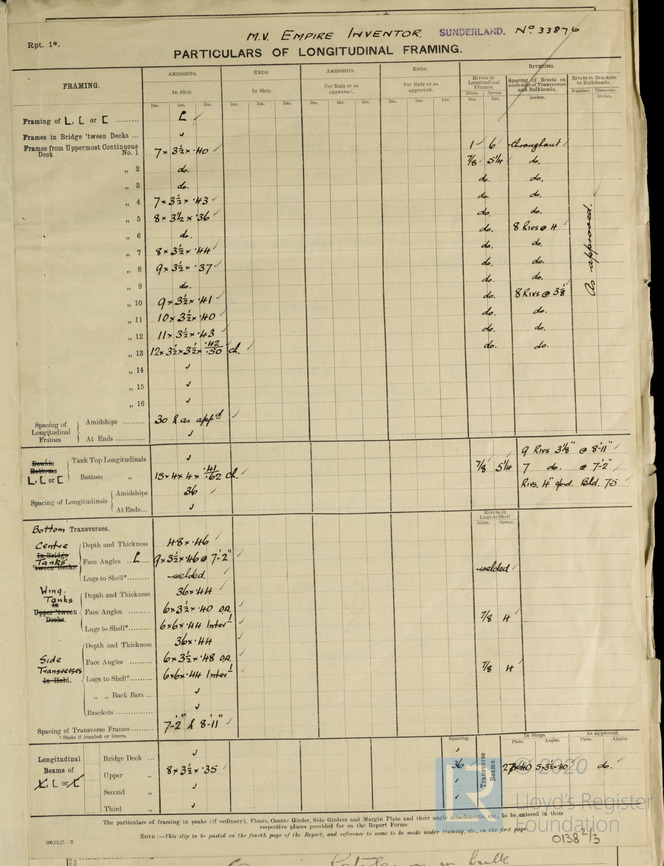 M.V. EMPIRE INVENTOR. SUNDERLAND. No. 33876
Rpt. 1*.
PARTICULARS OF LONGITUDINAL FRAMING.
FRAMING. AMIDSHIPS. ENDS. AMIDSHIPS. ENDS. RIVETING.
In Ship. In Ship. Per Rule or as approved. Per Rule or as approved. Rivets in Longitudinal Frames. Spacing of Rivets on each side of Transverses and Bulkheads. Rivets in Brackets to Bulkheads.
Ins. Ins. Ins. Ins. Ins. Ins. Ins. Ins. Ins. Ins. Ins. Ins. Diam. Ins. Spacg. Ins. Inches. Number. Diameter. Inches
Framing of L, L or [ ......... L ✓
Frames in Bridge 'tween Decks ... ✓
Frames from Uppermost Continuous Deck No. 1 7 × 3½ × .40 1 ✓ 6 ✓ throughout
„ 2 do. 7/8 5¼ do.
„ 3 do. do. do.
„ 4 7 × 3½ × .43 do. do.
„ 5 8 × 3½ × .36 do. do.
„ 6 do. do. 8 Rivs @ 4
„ 7 8 × 3½ × .44 do. do.
„ 8 9 × 3½ × .37 do. do.
„ 9 do. do. do.
„ 10 9 × 3½ × .41 do. 8 Rivs @ 3⅞
„ 11 10 × 3½ × .40 do. do.
„ 12 11 × 3½ × .43 do. do.
„ 13 12 × 3½ × 3½ × .42/.50 ch. do. do.
As approved.
„ 14 ✓
„ 15 ✓
„ 16 ✓
Spacing of Longitudinal Frames { Amidships 30 & as appd
At Ends ............ ✓
Double Bottoms L, L or [ Tank Top Longitudinals ✓ 9 Rivs 3⅛" @ 8'-11"
Bottom „ 15 × 4 × 4 × .41/.62 ch. 7/8 5¼ 7 do. @ 7'-2"
Spacing of Longitudinals { Amidships 36 Rivs. 4" Bhd. 75
At Ends... ✓
Bottom Transverses. Rivets in Lugs to Shell. Diam. Spacg.
Centre Tanks In Bridge 'tween Decks { Depth and Thickness 48 × .46
Face Angles .. L. 9 × 3½ × .46 @ 7'-2"
Lugs to Shell* ......... welded welded
Wing Tanks in Upper 'tween Decks. { Depth and Thickness 36 × .44
Face Angles ......... 6 × 3½ × .40 OR 7/8 4
Lugs to Shell* ......... 6 × 6 × .44 Interl
Side Transverses In Hold. { Depth and Thickness 36 × .44
Face Angles ......... 6 × 3½ × .48 OR 7/8 4
Lugs to Shell* ......... 6 × 6 × .44 Interl
„ „ Back Bars ... ✓
Brackets ............... ✓
Spacing of Transverse Frames ......... 7'-2" & 8'-11"
* State if joggled or liners.
Spacing. Transverse Beams. In Ships. Plate. Angles. As approved. Plate. Angles
Longitudinal Beams of L, L or [ { Bridge Deck ... ✓ ✓
Upper „ 8 × 3½ × .35 36 do.
Second „ ✓ ✓
Third „ ✓ ✓
The particulars of framing in peaks (if ordinary), Floors, Centre Girder, Side Girders and Margin Plate and their angle attachments, etc., to be entered in their
respective places provided for on the Report Forms.
NOTE:—This slip to be pasted on the fourth page of the Report, and reference to same to be made under framing, etc., on the first page.
© 2020
Lloyd's Register
Foundation
0138 2/3